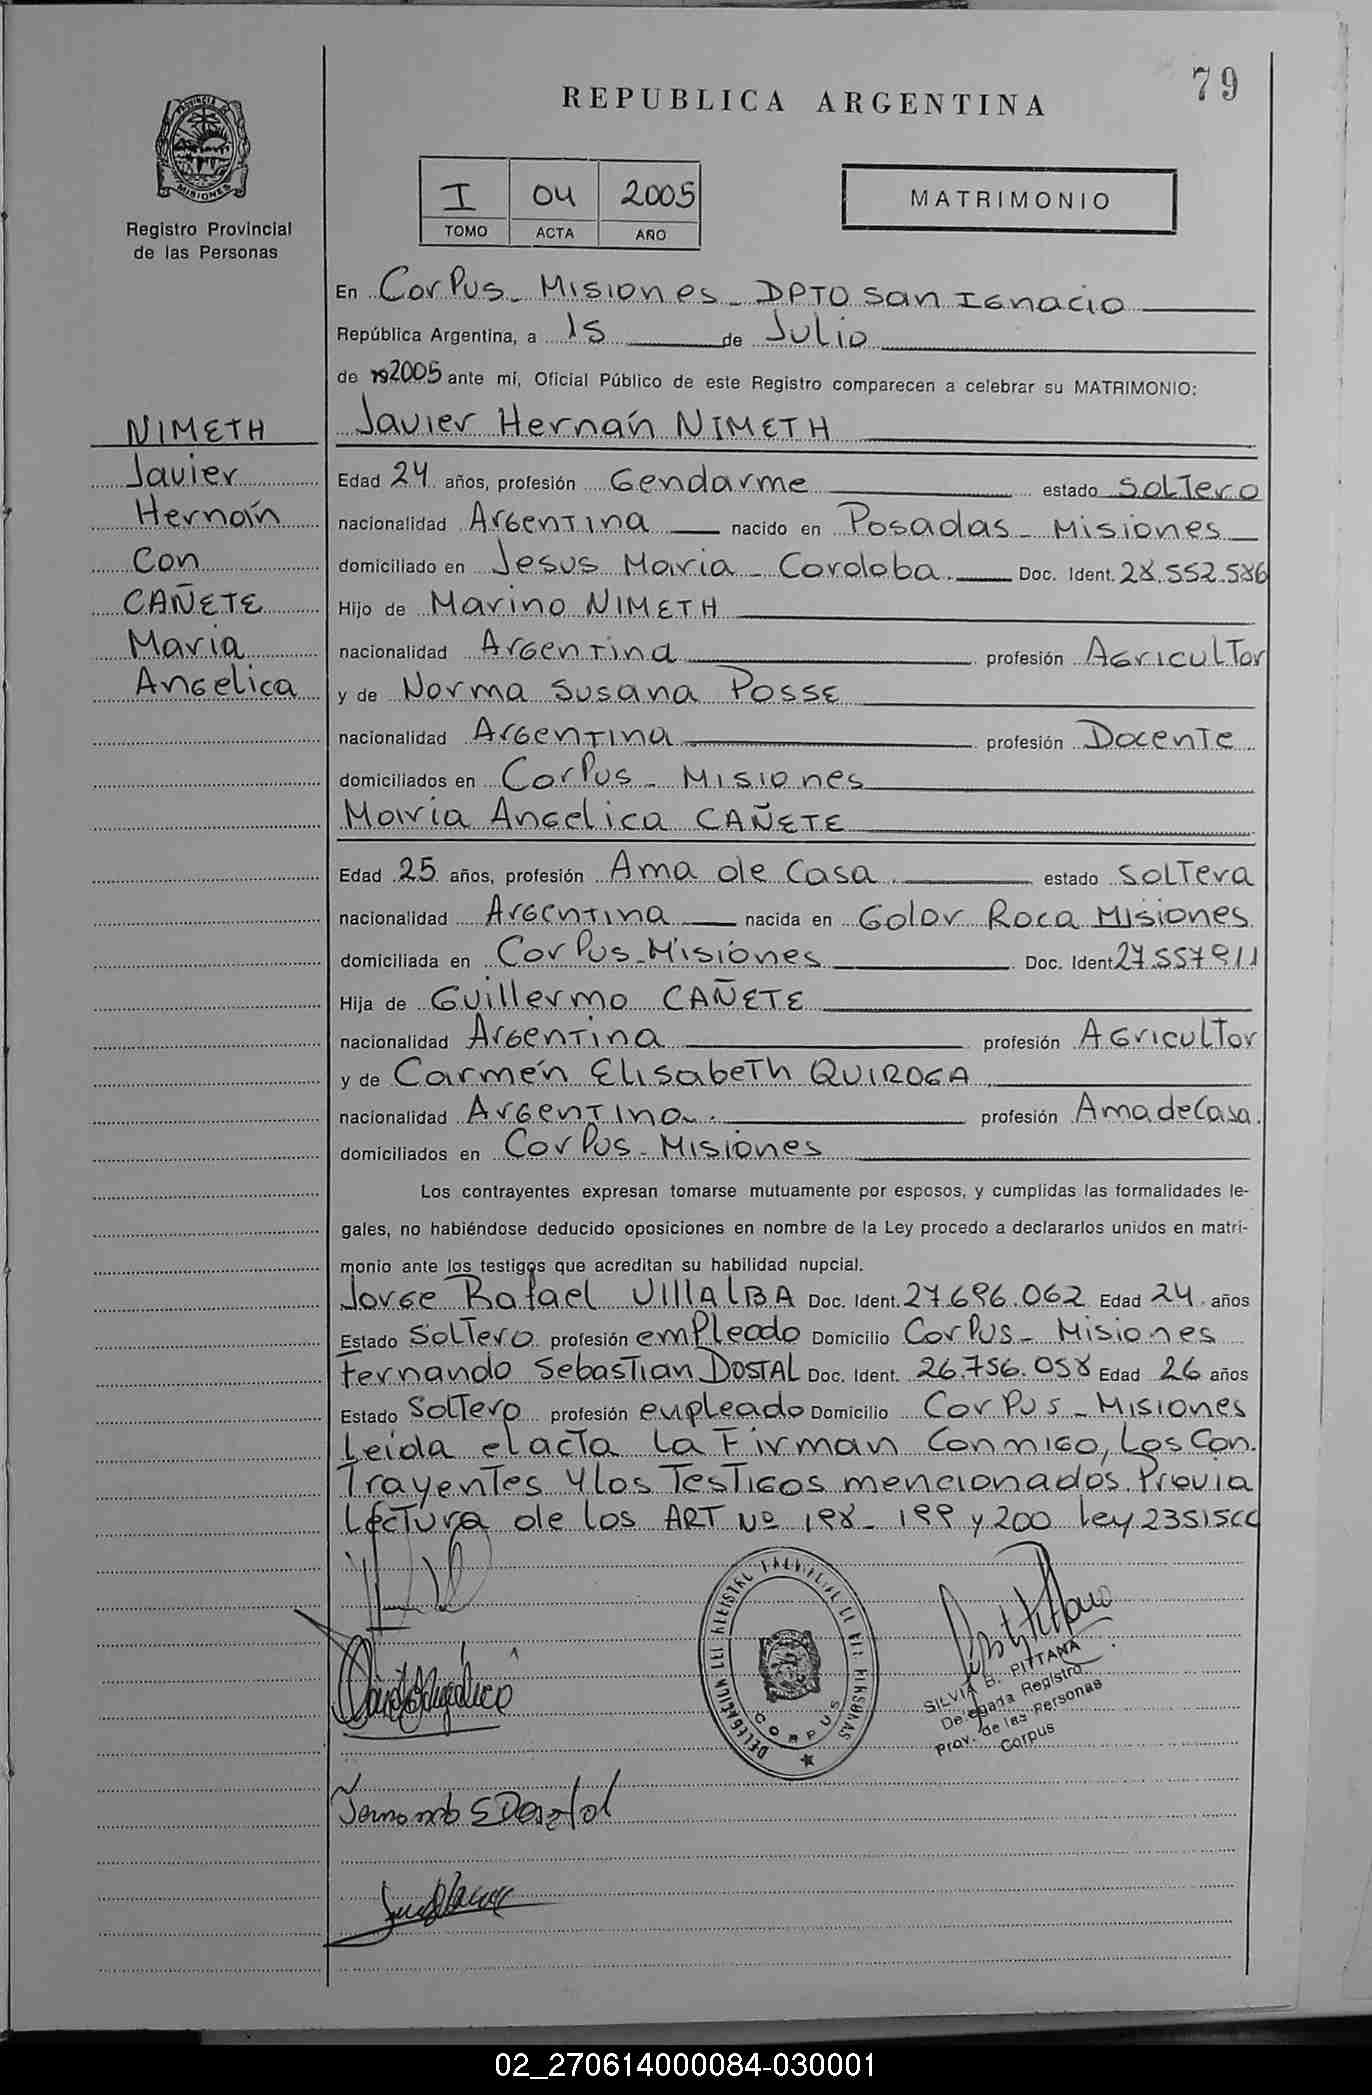 79
REPUBLICA ARGENTINA
PROVINCIA DE
MISIONES
Registro Provincial
de las Personas
I 04 2005
TOMO ACTA AÑO
MATRIMONIO
En Corpus_ Misiones_ DPTO San Ignacio
República Argentina, a 15 de Julio
de 2005 ante mí, Oficial Público de este Registro comparecen a celebrar su MATRIMONIO:
NIMETH
Javier
Hernán
Con
CAÑETE
Maria
Angelica
Javier Hernán NIMETH
Edad 24 años, profesión Gendarme estado Soltero
nacionalidad Argentina nacido en Posadas_ Misiones
domiciliado en Jesus Maria_ Cordoba. Doc. Ident. 28.552.586
Hijo de Marino NIMETH
nacionalidad Argentina profesión Agricultor
y de Norma Susana POSSE
nacionalidad Argentina profesión Docente
domiciliados en Corpus_ Misiones
Maria Angelica CAÑETE
Edad 25 años, profesión Ama de Casa. estado Soltera
nacionalidad Argentina nacida en Golor Roca Misiones
domiciliada en Corpus_Misiones Doc. Ident 27.557911
Hija de Guillermo CAÑETE
nacionalidad Argentina profesión Agricultor
y de Carmen Elisabeth QUIROGA
nacionalidad Argentina profesión Ama de Casa.
domiciliados en Corpus_ Misiones
Los contrayentes expresan tomarse mutuamente por esposos, y cumplidas las formalidades le-
gales, no habiéndose deducido oposiciones en nombre de la Ley procedo a declararlos unidos en matri-
monio ante los testigos que acreditan su habilidad nupcial.
Jorge Rafael VIllAlBA Doc. Ident. 27.696.062 Edad 24 años
Estado Soltero profesión empleado Domicilio Corpus_ Misiones
Fernando Sebastian DOSTAL Doc. Ident. 26.756.058 Edad 26 años
Estado Soltero profesión empleado Domicilio Corpus_ Misiones
Leida el acta la Firman Conmigo, Los Con.
Trayentes y los Testigos mencionados. Previa
Lectura de los ART Nº 198_ 199 y 200 ley 23515CC
DELEGACION DEL REGISTRO PROVINCIAL DE LAS PERSONAS
CORPUS
SILVIA B. PITTANA
Delegada Registro
Prov. de las Personas
Corpus
Fernando S Dostal
02_270614000084-030001